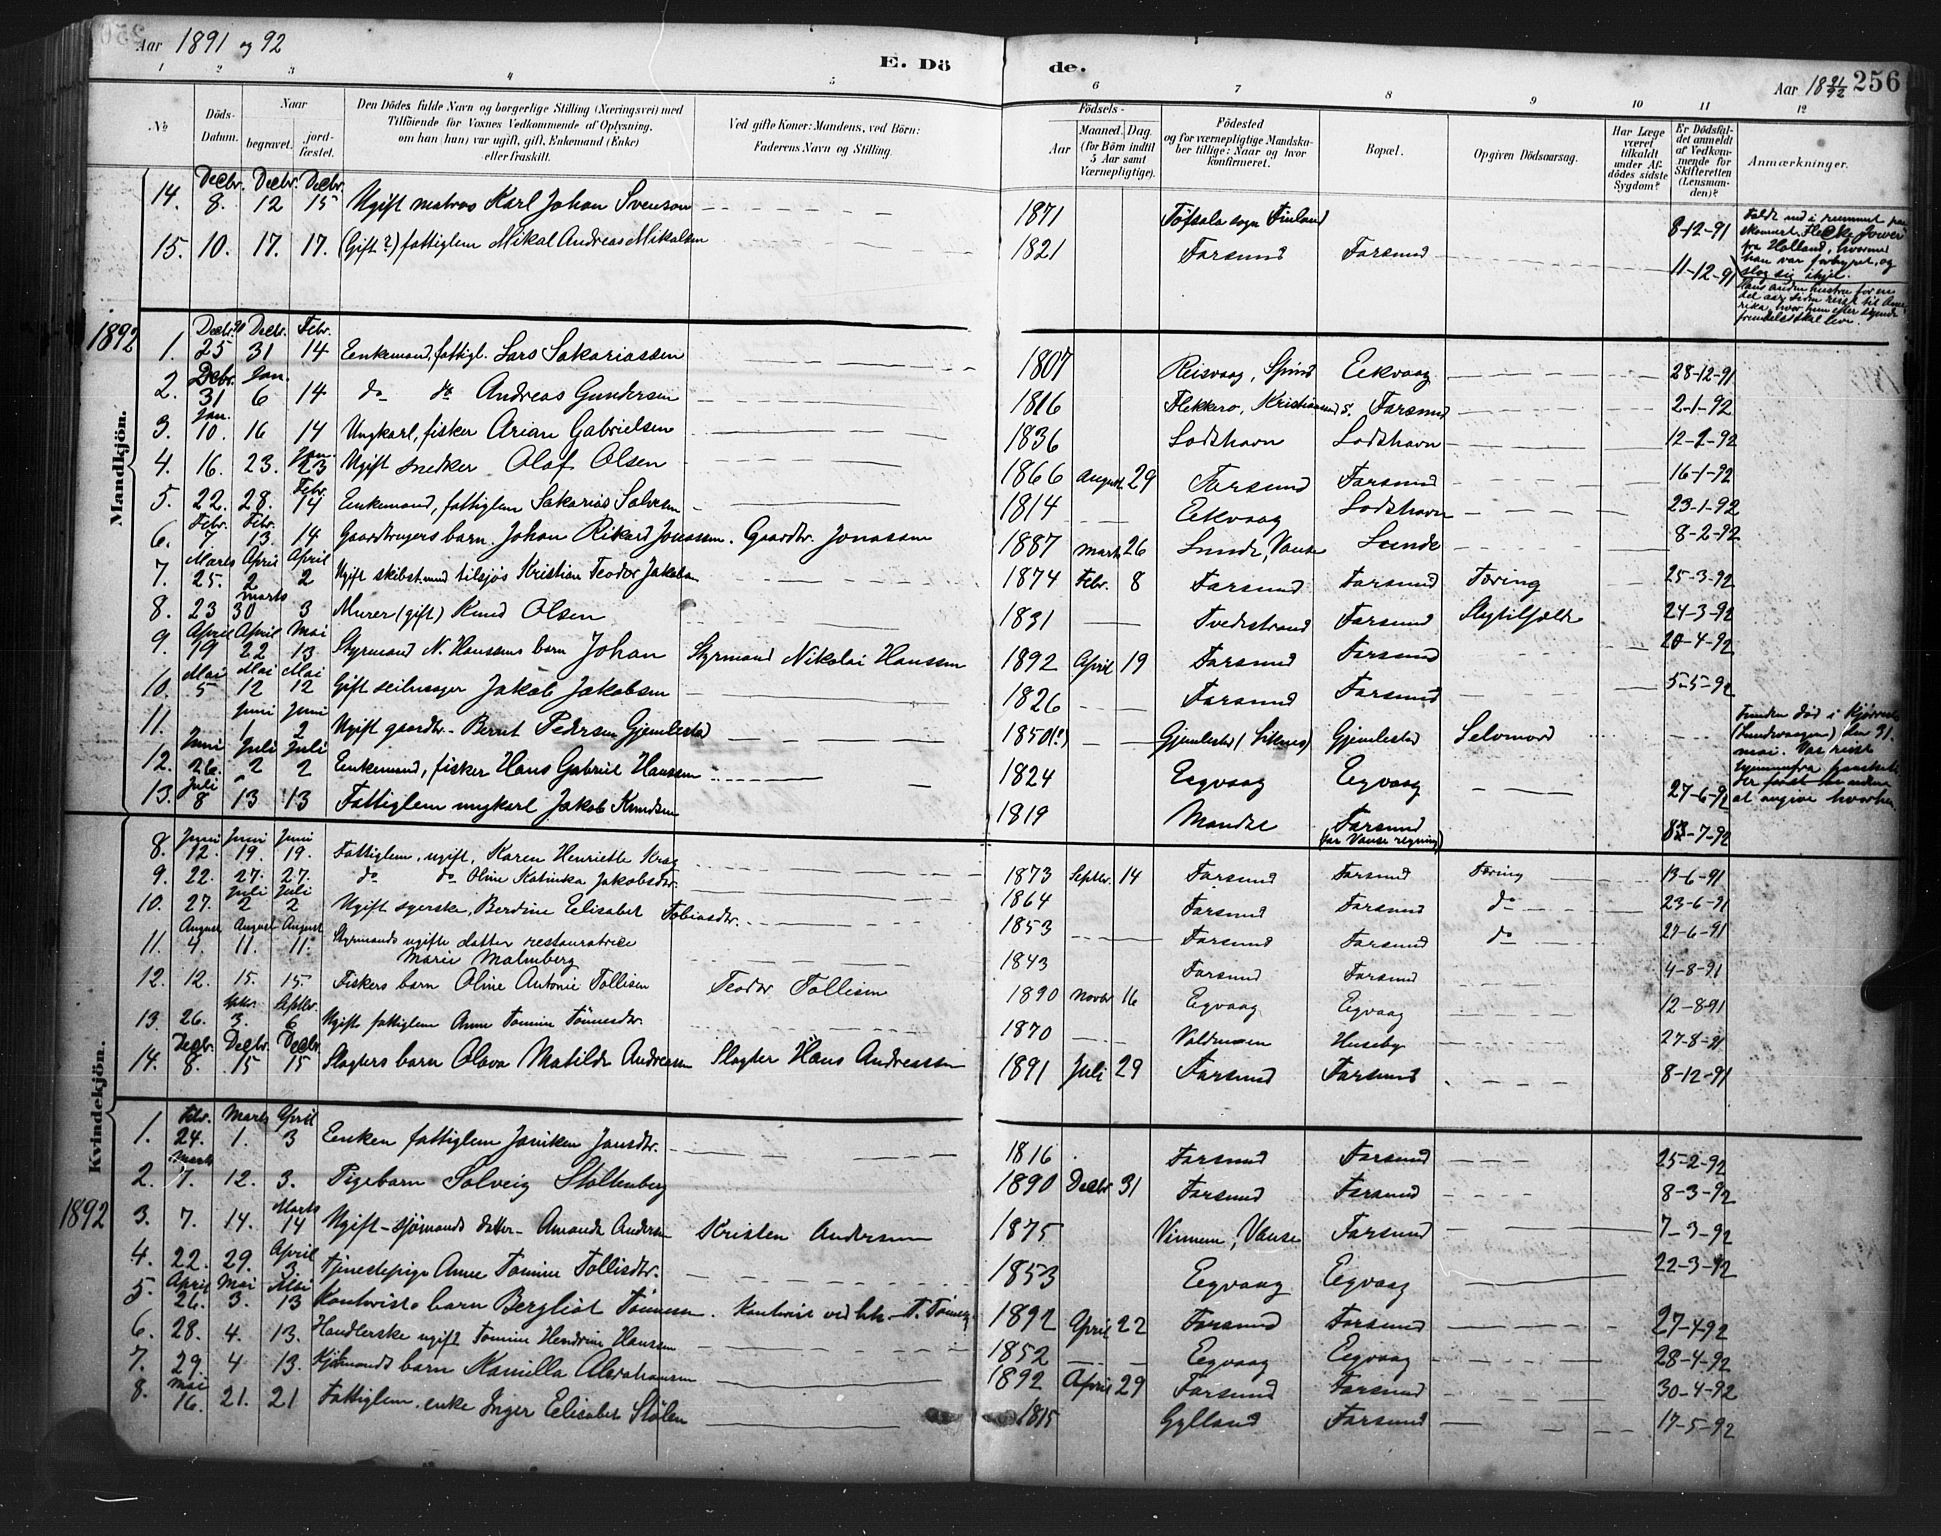 Aar 1891 og 92
E. Dö de.
Aar 18 91/92 256
1 2 3 4 5 6 7 8 9 10 11 12
No
Döds-Datum.
Naar begravet. jordfæstet.
Den Dödes fulde Navn og borgerlige Stilling (Næringsvei) med
Tilföiende for Voxnes Vedkommende af Oplysning,
om han (hun) var ugift, gift, Enkemand (Enke)
eller fraskilt.
Ved gifte Koner: Mandens, ved Börn:
Faderens Navn og Stilling.
Födsels-
Aar Maaned. Dag.
(for Börn indtil 5 Aar samt Værnepligtige).
Födested
og for værnepligtige Mandskaber tillige: Naar og hvor konfirmeret.
Bopæl.
Opgiven Dödsaarsag.
Har Læge været tilkaldt under Afdödes sidste Sygdom?
Er Dödsfaldet anmeldt af Vedkommende for Skifteretten (Lensmanden)?
Anmærkninger.
Mandkjön.
14. Decbr. 8. Decbr. 12 Decbr. 15 Ugift matros Karl Johan Svenson 1871 Töfsala sogn Finland 8-12-91 Faldt ned i rummet paa
fra Holland, hvormed
han var forhyret, og
slog sig ihjel.
15. 10. 17. 17. (Gift?) fattiglem Mikal Andreas Mikalsen 1821 Farsund Farsund 11-12-91 Hans anden hustru for en
del aar siden reist til Ame-
rika, hvor hun efter sigende
fremdeles skal leve.
1892
1. Decbr. 25 Decbr. 31 Febr. 14 Enkemand, fattigl. Lars Sakariassen 1807 Reisvaag, Spind Eekvaag 28-12-91
2. Debr. 31 Jan. 6 14 do do Andreas Gundersen 1816 Flekkerø, Kristiansand s. Farsund 2-1-92
3. Jan. 10. 16 14 Ungkarl, fisker Arian Gabrielsen 1836 Lodshavn Lodshavn 12-1-92
4. 16. 23. Jan. 23 Ugift snedker Olaf Olsen 1866 August 29 Farsund Farsund 16-1-92
5. 22. 28. Febr. 14 Enkemand, fattiglem Sakarias Salvesen 1814 Eekvaag Lodshavn 23-1-92
6. Febr. 7. Febr. 13. 14 Gaardbrugers barn. Johan Rikard Jonassen. Gaardbr. Jonassen 1887 marts 26 Lunde, Vanse Lunde 8-2-92
7. Marts 25. April 2 April 2 Ugift skibst. mand tilsjøs Kristian Teodor Jakobsen 1874 Febr. 8 Farsund Farsund Tæring 25-3-92
8. 23 marts 30 3 Murer (gift) Knud Olsen 1831 Tvedestrand Farsund Slagtilfælde 24-3-92
9. April 19 April 22 Mai 13 Styrmand N. Hanssens barn Johan Styrmand Nikolai Hanssen 1892 April 19 Farsund Farsund 20-4-92
10. Mai 5 Mai 12 Mai 12 Gift seilmager Jakob Jakobsen 1826 Farsund Farsund 5-5-92
11. Juni 1 Juni 2 Ugift gaardbr. Bernt Pedersen Gjemlestad 1850(?) Gjemlestad Gjemlestad Selvmord Funden død i
mai. Var reist
at angive hvorhen
12. Juni 26. Juli 2 Juli 2 Enkemand, fisker Hans Gabriel Hanssen 1824 Eegvaag Eegvaag 27-6-92
13. Juli 8 13 13 Fattiglem ungkarl Jakob Knudsen 1819 Mandal Farsund (for Vanse regning) 8-7-92
Kvindekjön.
8. Juni 12. Juni 19. Juni 19. Fattiglem, ugift, Karen Henriette Krag 1873 Septbr. 14 Farsund Farsund Tæring 13-6-91
9. 22. 27. 27. do do Oline Katinka Jakobsdtr. 1864 Farsund Farsund do 23-6-91
10. 27. Juli 2 Juli 2 Ugift syerske, Berdine Elisabet Tobiasdtr. 1853 Farsund Farsund do 27-6-91
11. August 4. August 11. August 11. Styrmands ugifte datter restauratrice
Marie Malmberg 1843 Farsund Farsund 4-8-91
12. 12. 15. 15. Fiskers barn Oline Antonie Tollisen Teodor Tollisen 1890 Novbr 16 Eegvaag Eegvaag 12-8-91
13. 26. Septbr. 3. Septbr. 6 Ugift fattiglem Anne Tomine Tönnesdtr. 1870 Huseby 27-8-91
14. Decbr. 8. Decbr. 15 Decbr. 15 Slagters barn Olava Matilde Andreassen Slagter Hans Andreassen 1891 Juli 29 Farsund Farsund 8-12-91
1892
1. Febr. 24. Marts 1. April 3 Enken fattiglem Janiken Jansdtr. 1816 Farsund Farsund 25-2-92
2. Marts 7. 12. 3. Pigebarn Solveig Stoltenberg 1890 Decbr 31 Farsund Farsund 8-3-92
3. 7. 14. Marts 14 Ugift sjømands datter Amanda Andersen Kristen Andersen 1875 Vinnem, Vanse Farsund 7-3-92
4. 22. 29. April 3. tjenestepige Anne Tomine Tollisdtr. 1853 Eegvaag Eegvaag 22-3-92
5. April 26. Mai 3. Mai 13 Kontorists barn Bergliot Tönnessen. Kontorist ved 1892 April 22 Farsund Farsund 27-4-92
6. 28. 4. 13. Handlerske ugift Tomine Hendrine Hanssen 1852 Eegvaag Eegvaag 28-4-92
7. 29 4 13. Kjøbmands barn Kamilla Abrahamsen 1892 April 29 Farsund Farsund 30-4-92
8. Mai 16. 21. 21 Fattiglem, enke Inger Elisabet Stölen 1815 Gylland Farsund 17-5-92